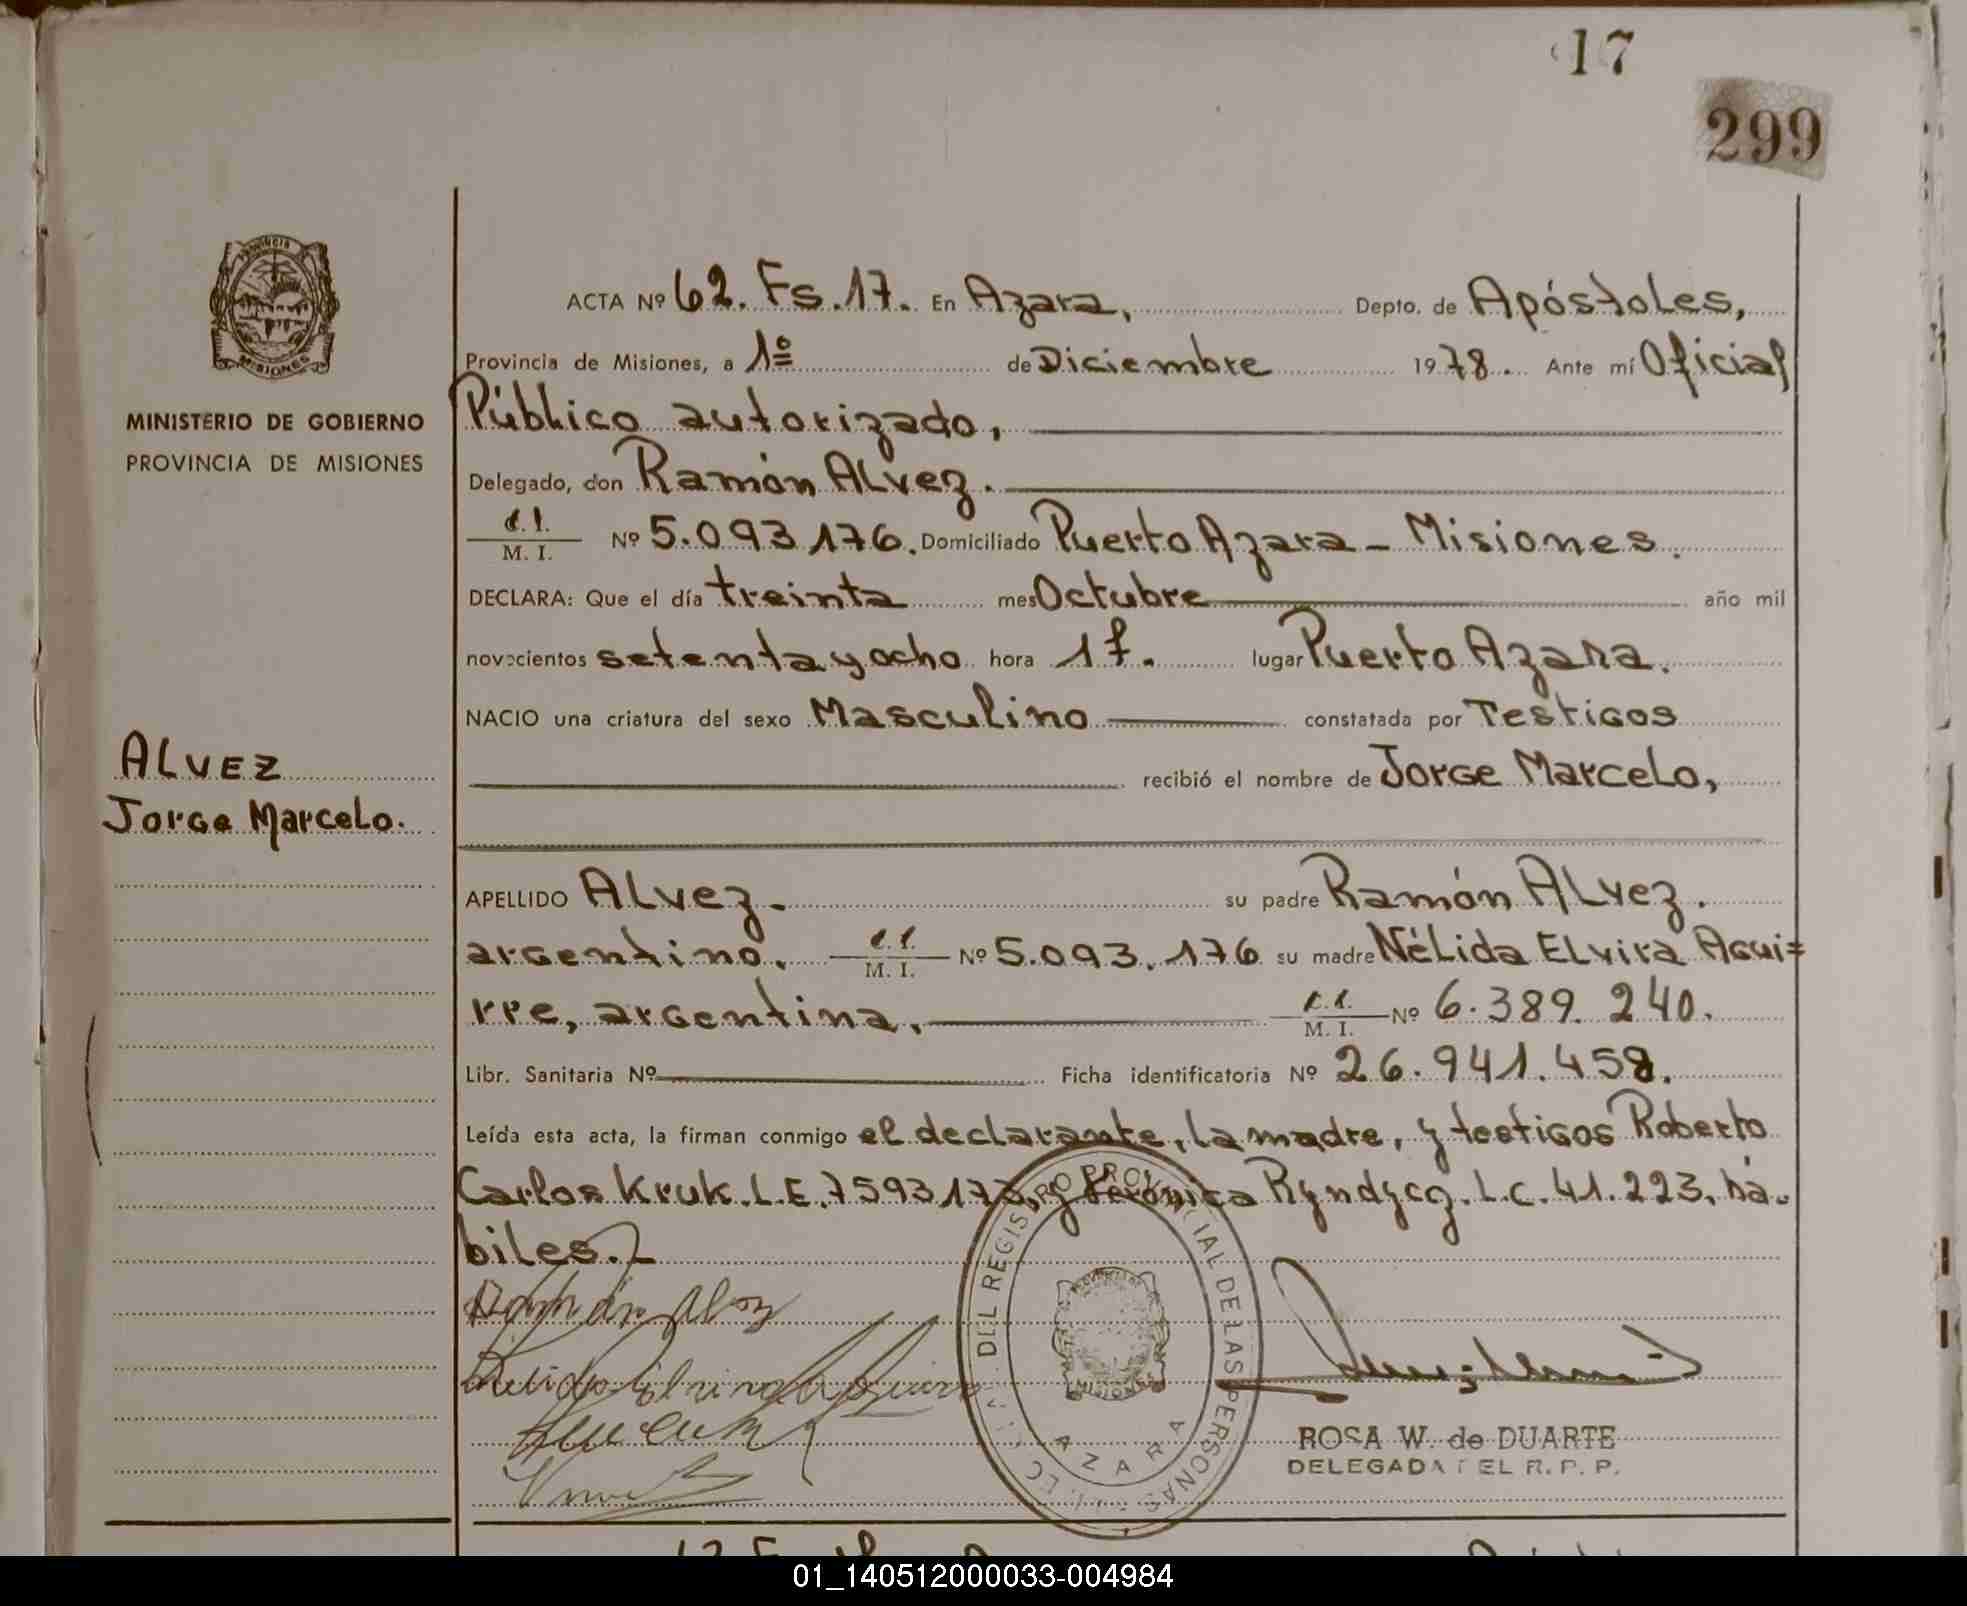 17
299
PROVINCIA
MISIONES
MINISTERIO DE GOBIERNO
PROVINCIA DE MISIONES
ALVEZ
Jorge Marcelo.
ACTA Nº 62. Fs. 17. En Azara, Depto. de Apóstoles,
Provincia de Misiones, a 1º de Diciembre 1978. Ante mí Oficial
Público autorizado,
Delegado, don Ramón Alvez.
M. I. Nº 5.093.176. Domiciliado Puerto Azara - Misiones.
DECLARA: Que el día treinta mes Octubre año mil
novecientos setenta y ocho hora 17. lugar Puerto Azara.
NACIO una criatura del sexo Masculino constatada por Testigos
recibió el nombre de Jorge Marcelo,
APELLIDO Alvez. su padre Ramón Alvez.
argentino, M. I. Nº 5.093.176 su madre Nélida Elvira Agui=
rre, argentina, M. I. Nº 6.389.240.
Libr. Sanitaria Nº Ficha identificatoria Nº 26.941.458.
Leída esta acta, la firman conmigo el declarante, la madre, y testigos Roberto
Carlos Kruk. L.E. 7593173, y Verónica Ryndycz. L.C. 41.223, há-
biles.-
DEL REGISTRO PROVINCIAL DE LAS PERSONAS
AZARA
MISIONES
ROSA W. de DUARTE
DELEGADA DEL R. P. P.
01_140512000033-004984